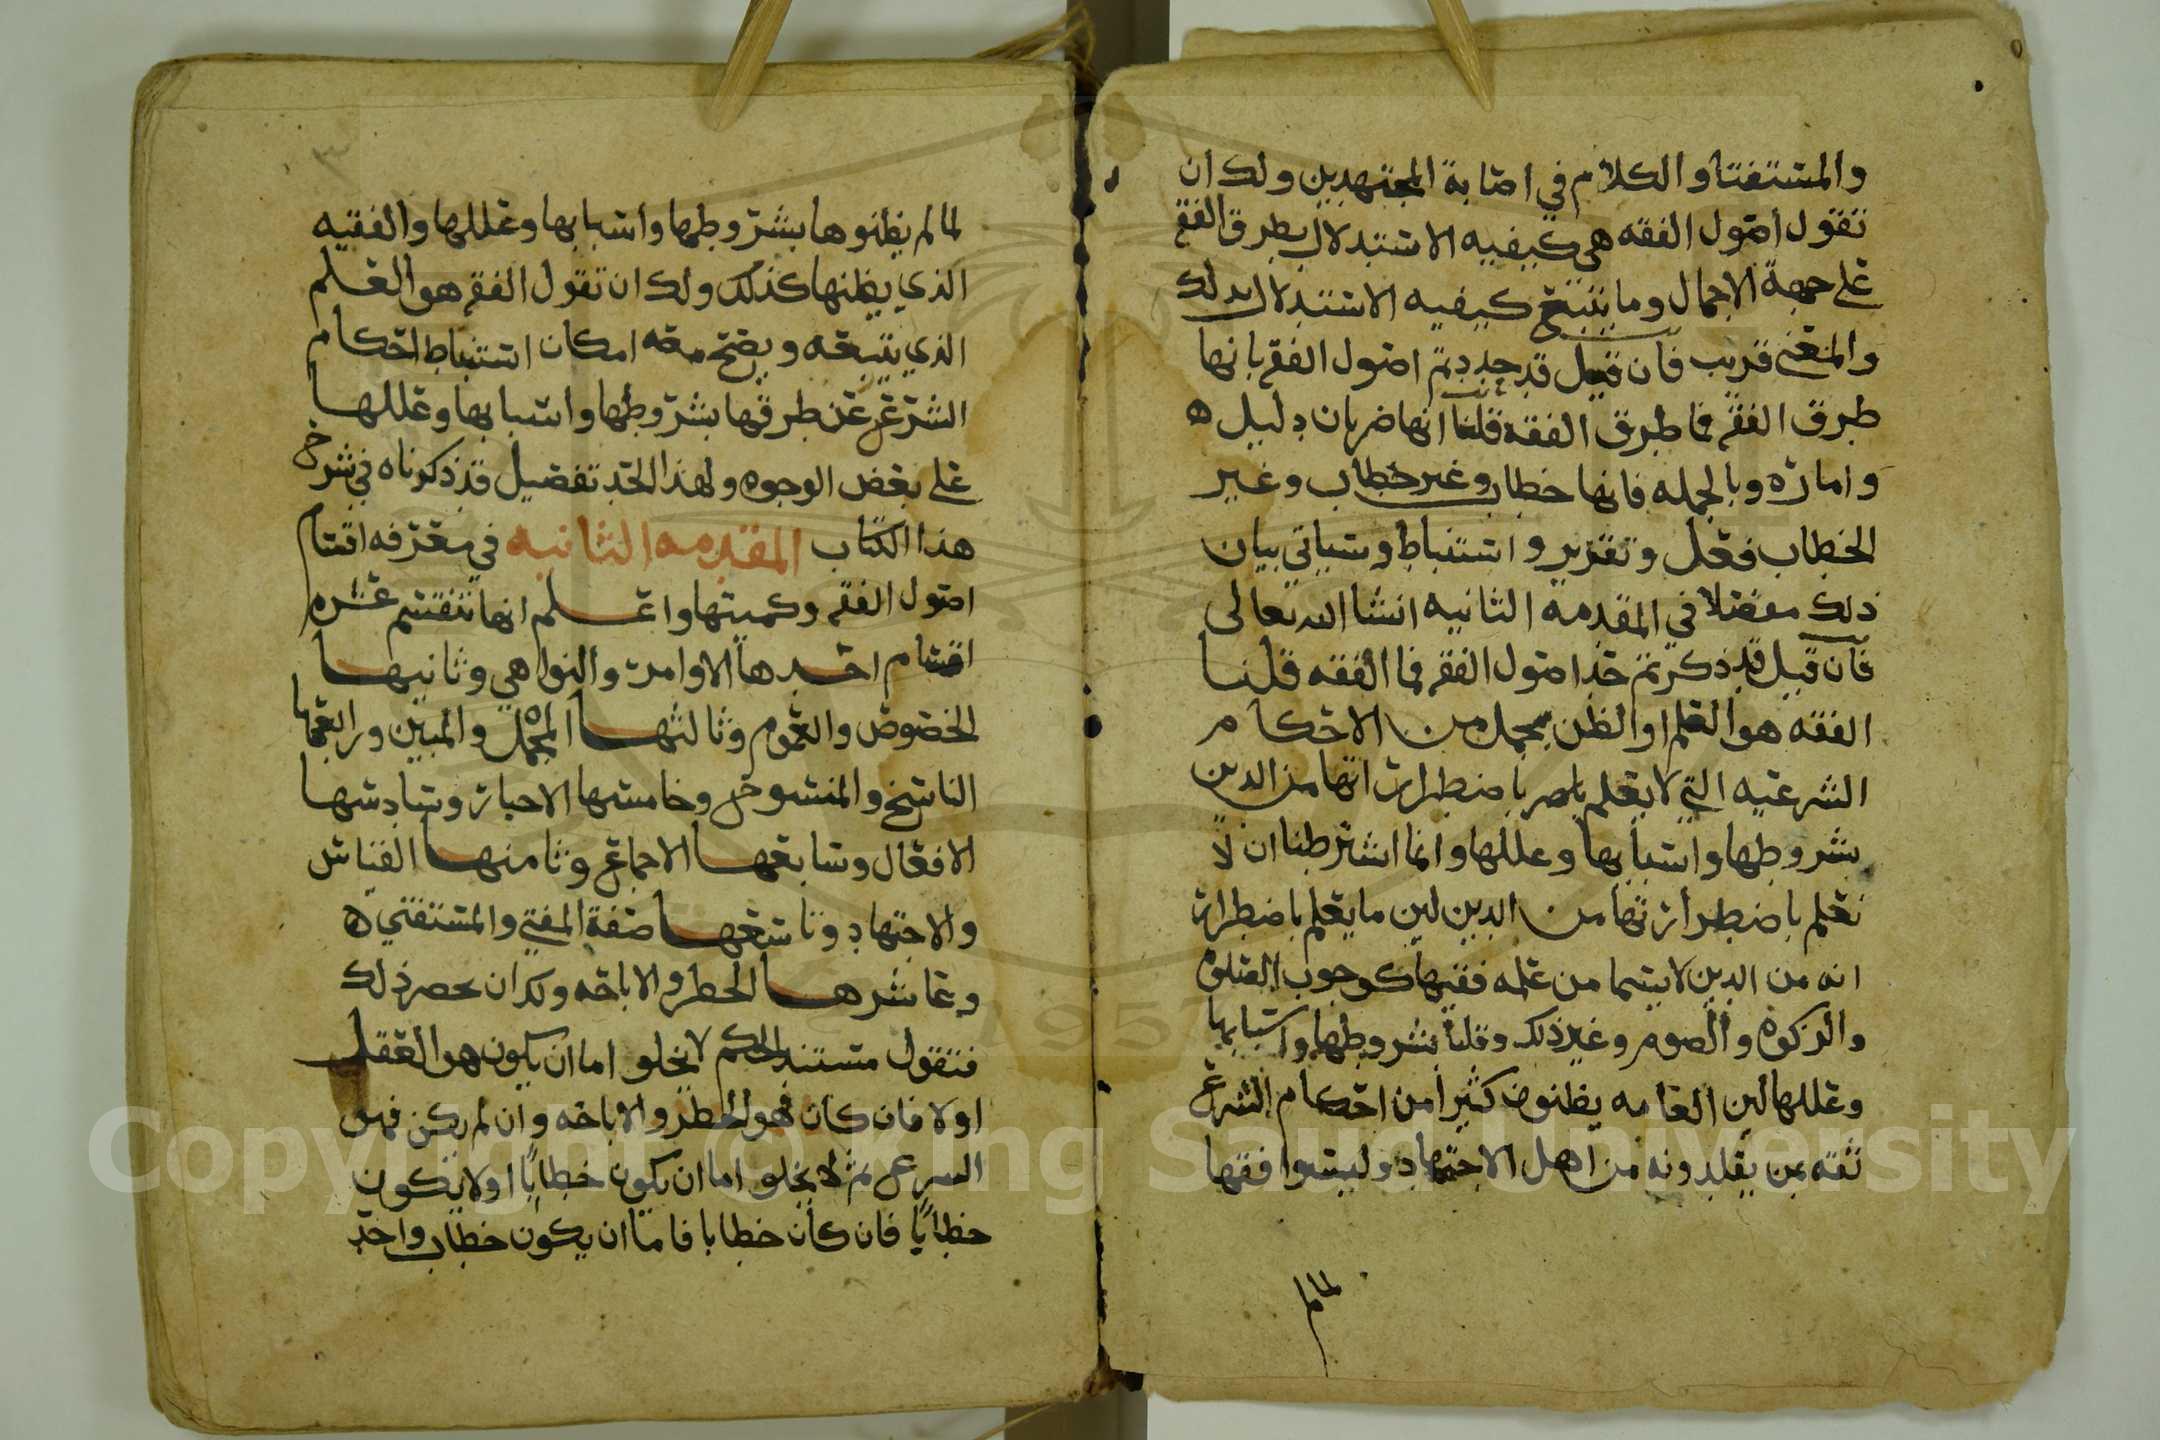 والمستفتا والكلام في اصابة المجتهدين ولك ان
تقول أصول الفقه هي كيفيه الاستدلال بطرق الفقه
على جهة الاجمال وما يتبع كيفيه الاستدلال بذلك
والمعنى قريب فان قيل قد حددتم اصول الفقه بانها
طرق الفقه فما طرق الفقه قلنا انها ضربان دليل ه
واماره وبالجمله فانها خطاب وغير خطاب وغير
الخطاب فعل وتقرير واستنباط وسياتي بيان
ذلك مفصلا في المقدمه الثانيه انشا الله تعالى
فان قيل قد ذكرتم حد اصول الفقه فما الفقه قلنا
الفقه هو العلم او الظن بجمل من الاحكام
الشرعيه التي لا يعلم باضطرار انها من الدين
بشروطها واسبابها وعللها وانما اشترطنا ان لا
نعلم باضطرار انها من الدين لين ما يعلم باضطرار
انه من الدين لا يسما من علمه فقيها كوجوب الصلوه
والزكوه والصوم وغير ذلك وقلنا بشروطها واسبابها
وعللها لين العامه يظنون كثيرا من احكام الشرع
ثقه بمن يقلدونه من اهل الاجتهاد وليسوا فقها
لمالم
٣
لما لم يظنوها بشروطها واسبابها وعللها والفقيه
الذي يظنها كذلك ولك ان تقول الفقه هو العلم
الذي يتبعه ويصح معه امكان استنباط احكام
الشرع عن طرقها بشروطها واسبابها وعللها
على بعض الوجوه ولهذا الحد تفصيل قد ذكرناه في شرح
هذا الكتاب المقدمه الثانيه في معرفه اقسام
اصول الفقه وكميتها واعلم انها تنقسم عشره
اقسام احدها الاوامر والنواهي وثانيها
الخصوص والعموم وثالثها المجمل والمبين ورابعها
الناسخ والمنسوخ وخامسها الاخبار وسادسها
الافعال وسابعها الاجماع وثامنها القياس
والاجتهاد وتاسعها صفة المفتي والمستفتي ه
وعاشرها الحظر والاباحه ولك ان تحصر ذلك
فتقول مستند الحكم لا يخلو اما ان يكون هو العقل
اولا فان كان فهو الحظر والاباحه وان لم يكن فهو
الشرعي ثم لا يخلو اما ان يكون خطابا اولا يكون
خطابا فان كان خطابا فاما ان يكون خطاب واحد
Copyright © King Saud University
1957